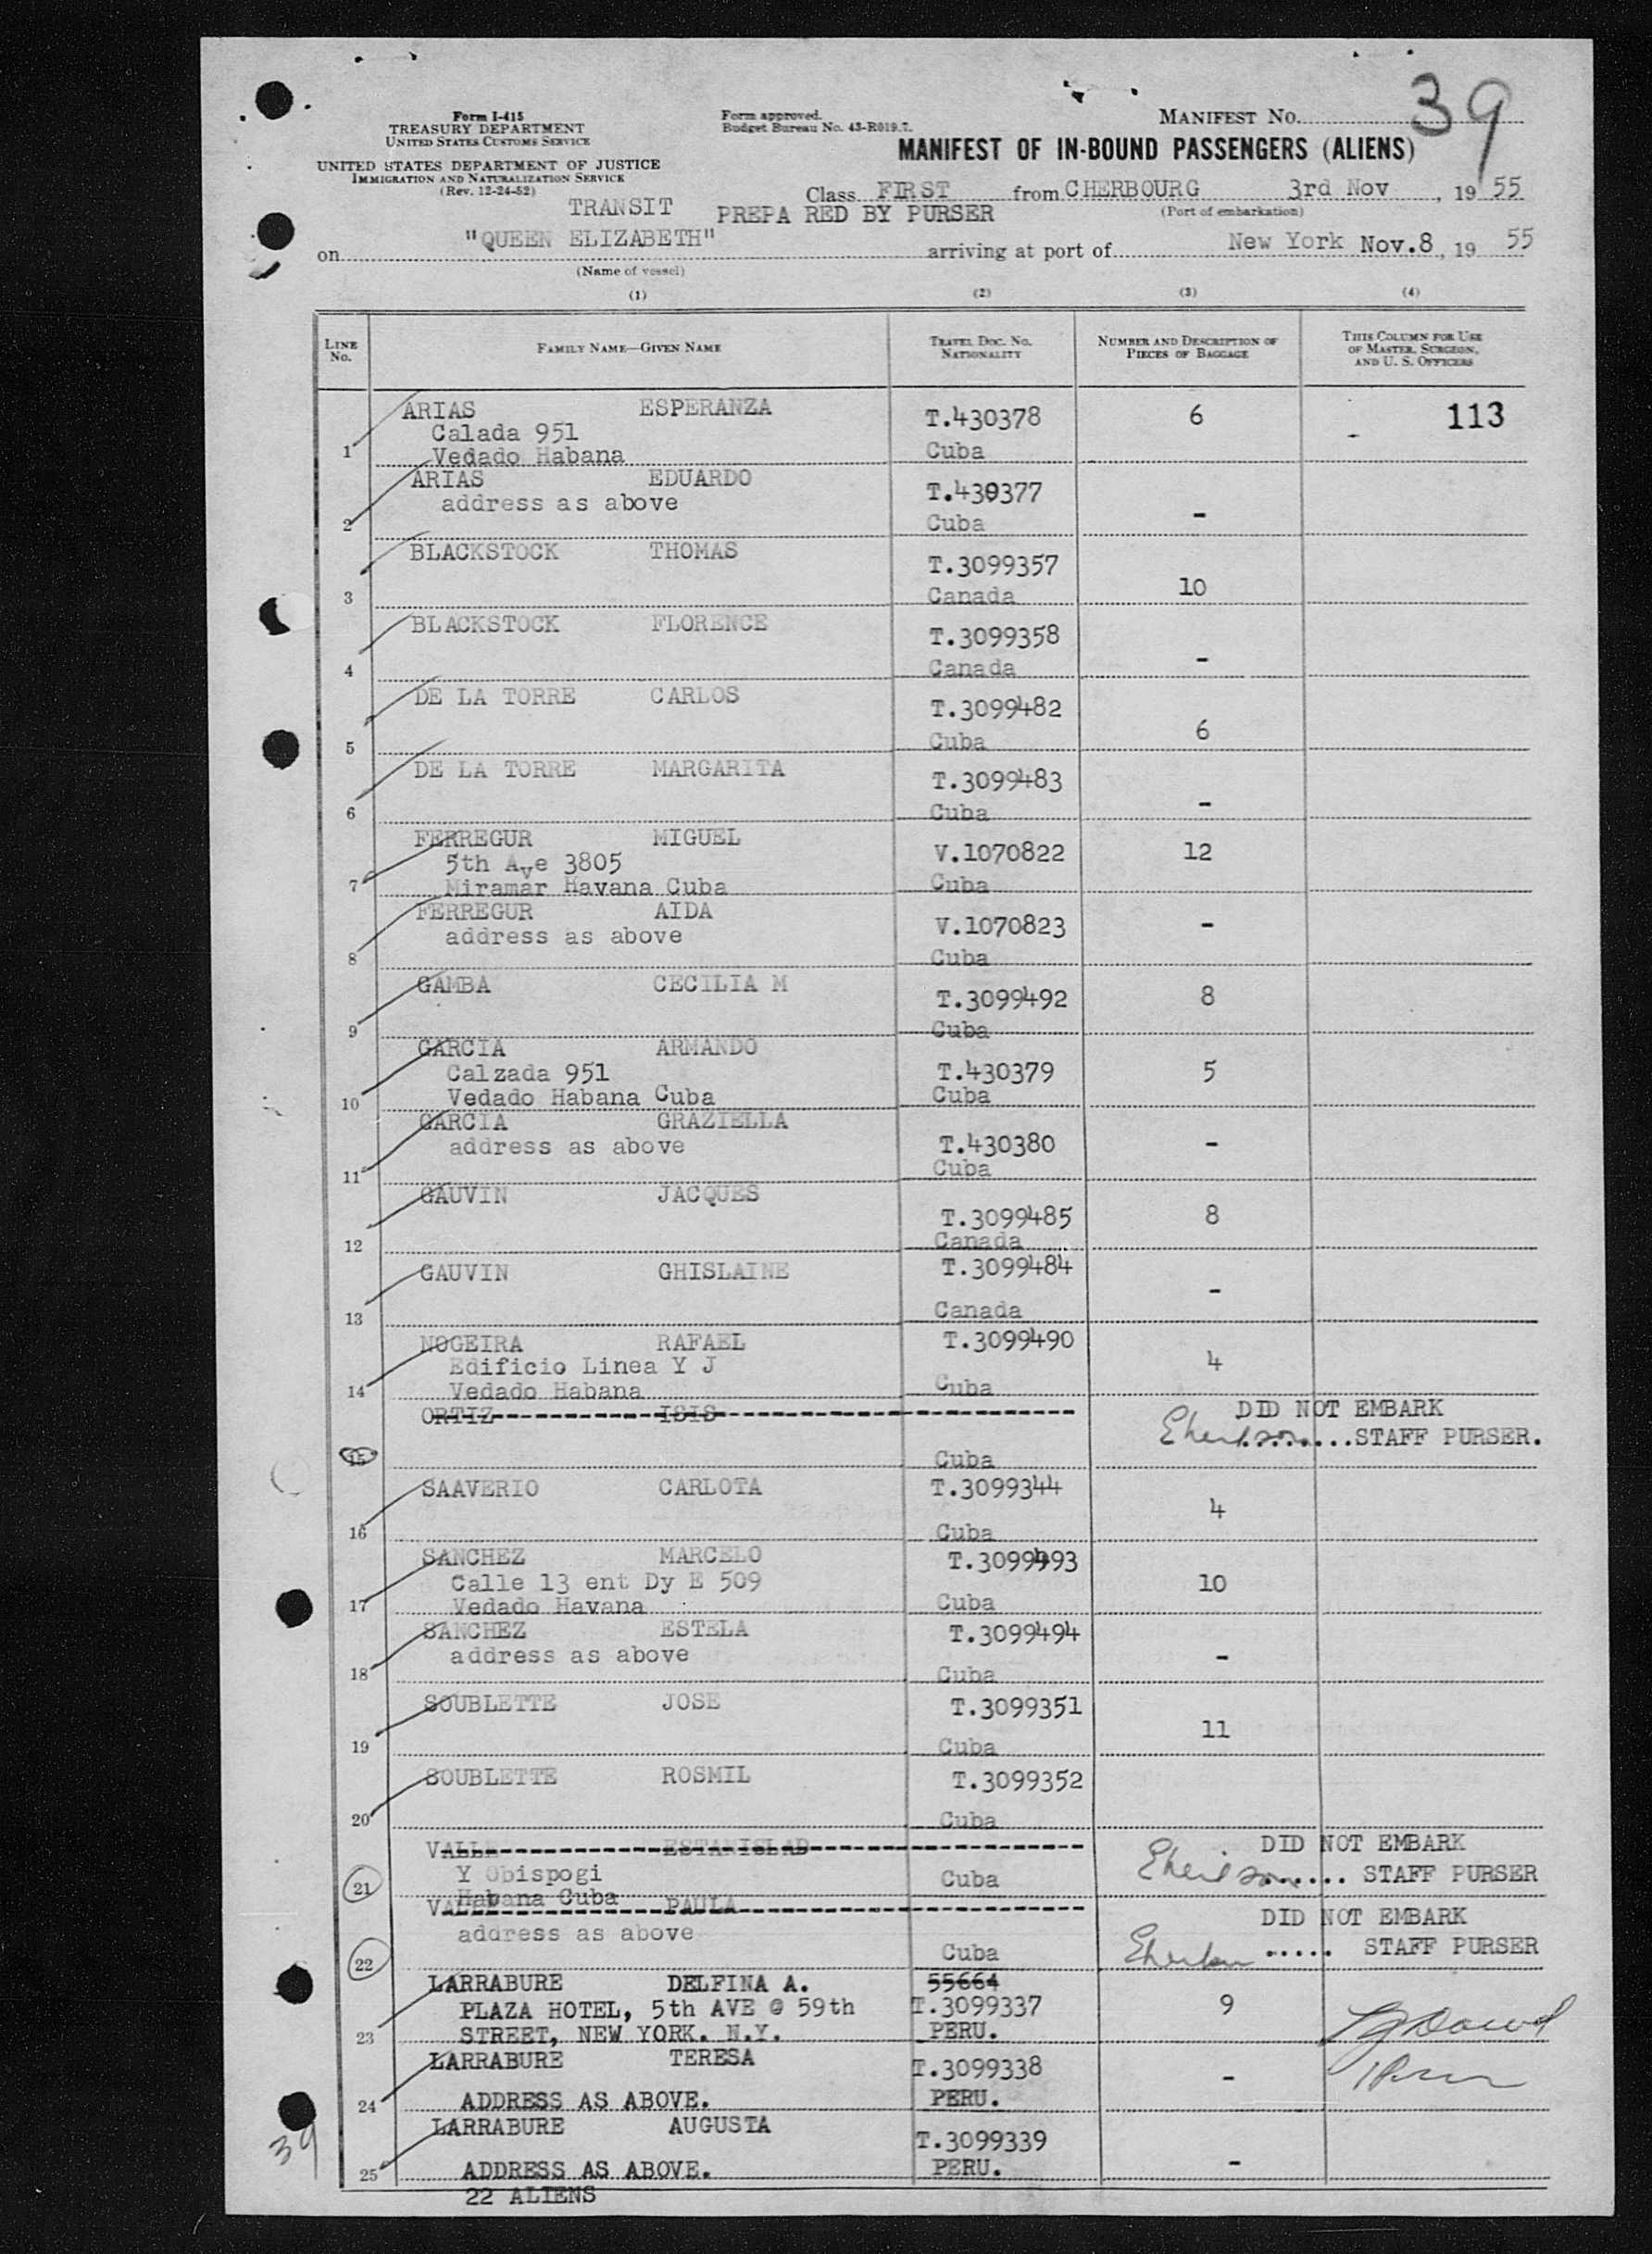 39
Form I-415
TREASURY DEPARTMENT
UNITED STATES CUSTOMS SERVICE
UNITED STATES DEPARTMENT OF JUSTICE
IMMIGRATION AND NATURALIZATION SERVICE
(Rev. 12-24-52)
Form approved.
Budget Bureau No. 43-R019.7.
MANIFEST No.
MANIFEST OF IN-BOUND PASSENGERS (ALIENS)
Class FIRST from CHERBOURG 3rd Nov, 19 55
(Port of embarkation)
TRANSIT PREPA RED BY PURSER
on "QUEEN ELIZABETH" arriving at port of New York Nov.8, 19 55
(Name of vessel)
(1) (2) (3) (4)
LINE No. FAMILY NAME—GIVEN NAME TRAVEL DOC. NO. NATIONALITY NUMBER AND DESCRIPTION OF PIECES OF BAGGAGE THIS COLUMN FOR USE OF MASTER, SURGEON, AND U. S. OFFICERS
ARIAS ESPERANZA T.430378 6 113
Calada 951
1 Vedado Habana Cuba
ARIAS EDUARDO T.430377
address as above
2 Cuba -
BLACKSTOCK THOMAS T.3099357
3 Canada 10
BLACKSTOCK FLORENCE T.3099358
4 Canada -
DE LA TORRE CARLOS T.3099482
5 Cuba 6
DE LA TORRE MARGARITA T.3099483
6 Cuba -
FERREGUR MIGUEL V.1070822 12
5th Ave 3805
7 Miramar Havana Cuba Cuba
FERREGUR AIDA V.1070823 -
address as above
8 Cuba
GAMBA CECILIA M T.3099492 8
9 Cuba
GARCIA ARMANDO T.430379 5
Calzada 951
10 Vedado Habana Cuba Cuba
GARCIA GRAZIELLA T.430380 -
address as above
11 Cuba
GAUVIN JACQUES T.3099485 8
12 Canada
GAUVIN GHISLAINE T.3099484 -
13 Canada
NOGEIRA RAFAEL T.3099490
Edificio Linea Y J 4
14 Vedado Habana Cuba
ORTIZ ISIS DID NOT EMBARK
STAFF PURSER.
15 Cuba
SAAVERIO CARLOTA T.3099344 4
16 Cuba
SANCHEZ MARCELO T.3099493
Calle 13 ent Dy E 509 10
17 Vedado Havana Cuba
SANCHEZ ESTELA T.3099494
address as above -
18 Cuba
SOUBLETTE JOSE T.3099351 11
19 Cuba
SOUBLETTE ROSMIL T.3099352
20 Cuba
VALLE ESTANISLAD DID NOT EMBARK
Y Obispogi Cuba STAFF PURSER
21 Habana Cuba
VALLE PAULA DID NOT EMBARK
address as above Cuba STAFF PURSER
22
LARRABURE DELFINA A. 55664
PLAZA HOTEL, 5th AVE @ 59th T.3099337 9
23 STREET, NEW YORK. N.Y. PERU.
LARRABURE TERESA T.3099338 -
24 ADDRESS AS ABOVE. PERU.
LARRABURE AUGUSTA T.3099339
25 ADDRESS AS ABOVE. PERU. -
22 ALIENS
39